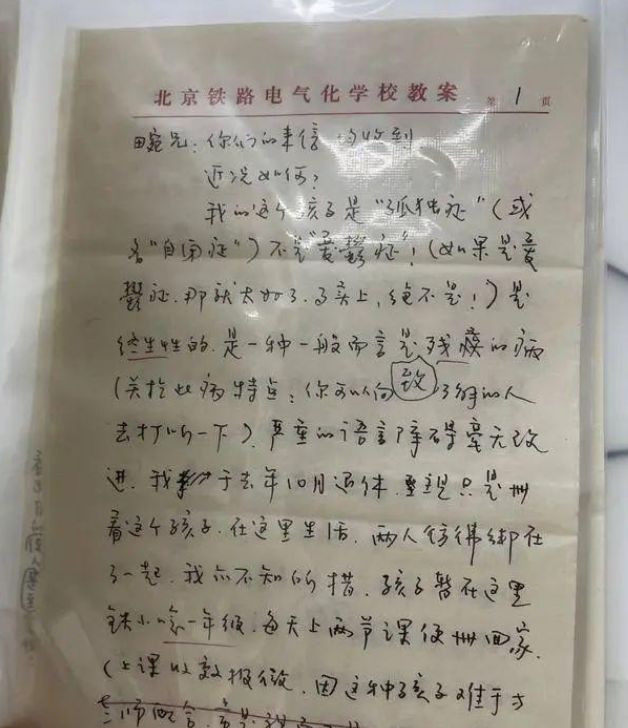 北京铁路电气化学校教案 第 1 页
兄：你们的来信均收到
近况如何？
我的这个孩子是“孤独症”（或
名“自闭症”）不是“忧鬱症”！（如果是忧
鬱症，那就太好了，事实上，绝不是！）是
终生性的，是一种一般而言是致残的病
（关于此病特点，你可以向了解的人
去打听一下）。严重的语言障碍毫无改
进。我于去年10月退体，只是
着这个孩子，在这里生活，两人仿佛绑在
了一起，我亦不知所措，孩子暂在这里
铁小念一年级，每天上两节课便回家，
（上课收效极微，因这种孩子难于与
老师配合，